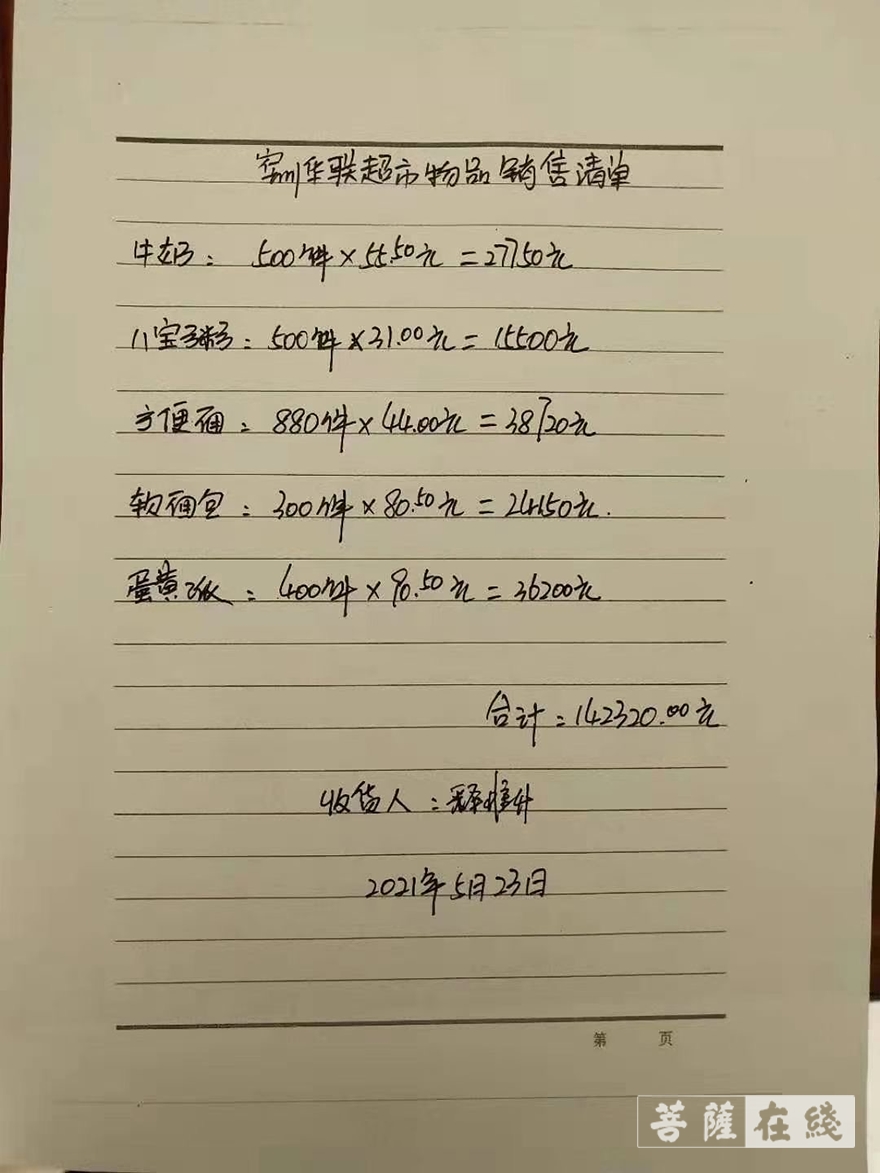 宾川华联超市物品销售清单
牛奶：500件×55.50元=27750元
八宝粥：500件×31.00元=15500元
方便面：880件×44.00元=38720元
软面包：300件×80.50元=24150元.
蛋黄派：400件×90.50元=36200元
合计：142320.00元
收货人：释惟升
2021年5月23日
第 页
菩薩在綫